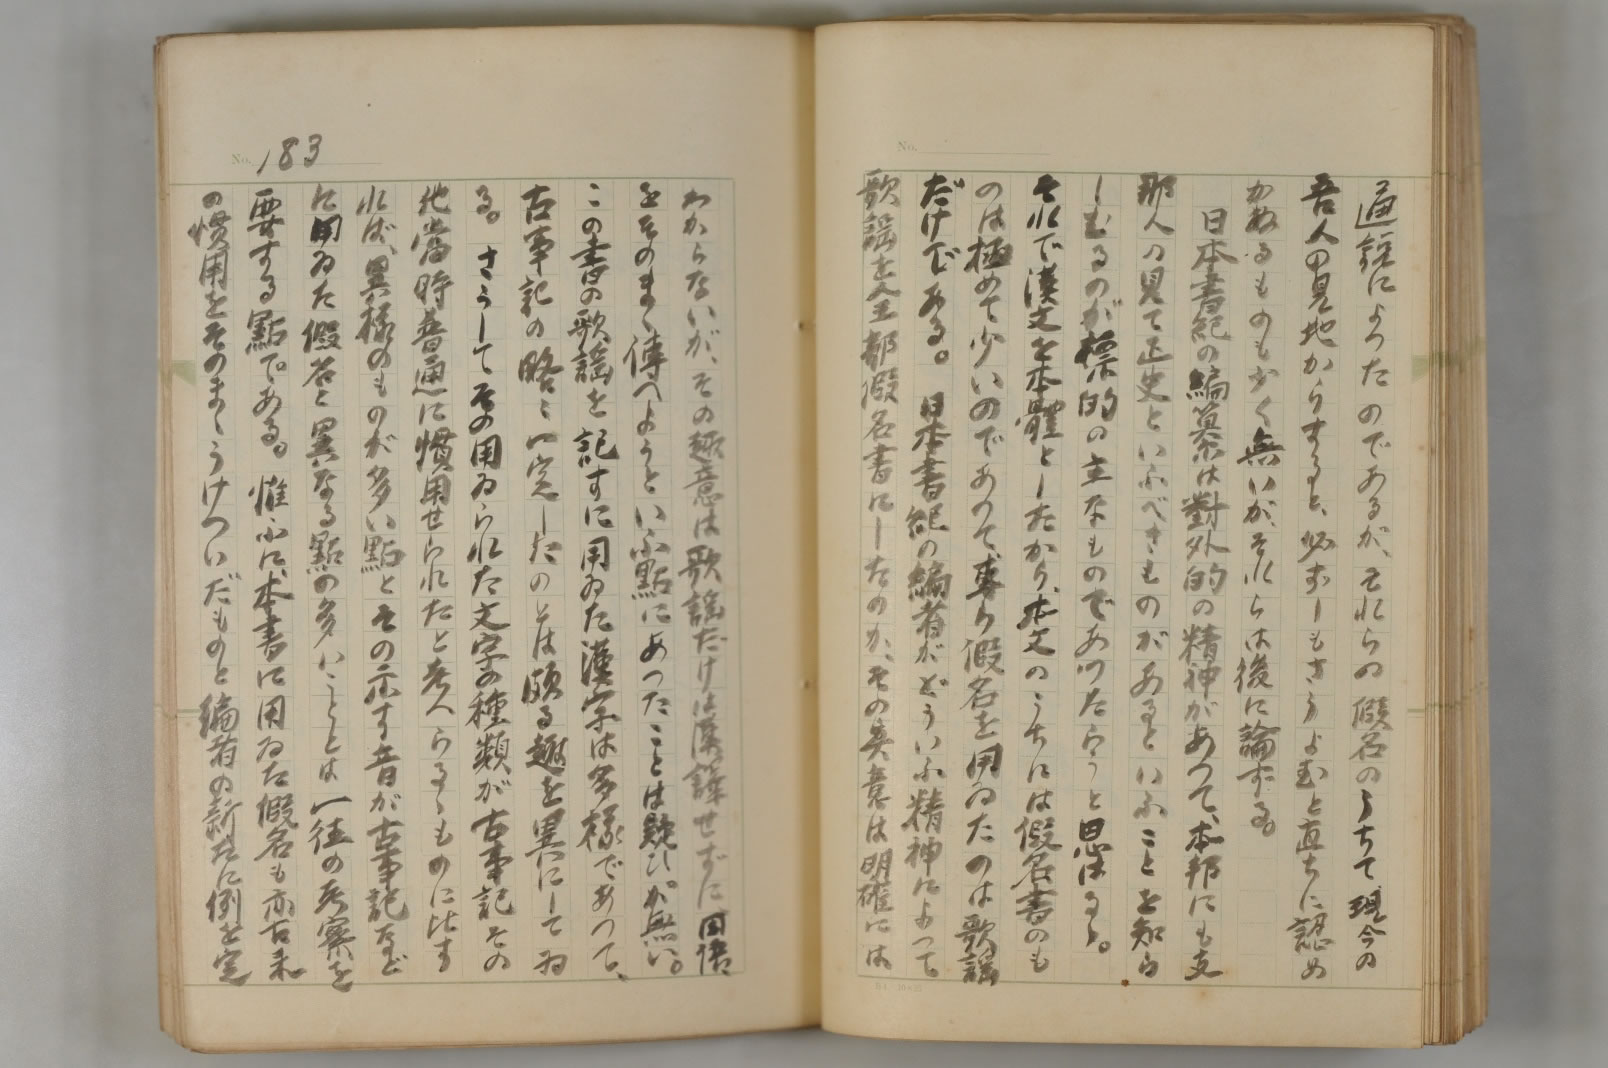 No.
通説によつたのであるが、それらの假名のうちて現今の
吾人の見地からすると、必ずしもさうよむと直ちに認め
かぬるものも少く無いが、それらは後に論ずる。
日本書紀の編纂は對外的の精神があつて、本邦にも支
那人の見て正史といふべきものがあるといふことを知ら
しむるのが標的の主なものであつたらうと思はるゝ。
それで漢文を本體としたから、本文のうちには假名書のも
のは極めて少いのであつて、專ら假名を用ゐたのは歌謡
だけである。日本書紀の編者がどういふ精神によつて
歌謡を全部假名書にしたのか、その眞意は明確には
No. 183
わからないが、その趣意は歌謡だけは漢譯せずに國語
をそのまゝ傳へようといふ點にあつたことは疑ひが無い。
この書の歌謡を記すに用ゐた漢字は多樣であつて、
古事記の略々一定したのとは頗る趣を異にしてゐ
る。さうしてその用ゐられた文字の種類が古事記その
他當時普通に慣用せられたと考へらるゝものに比す
れば、異樣のものが多い點とその示す音が古事記など
に用ゐた假名と異なる點の多いこととは一往の考察を
要する點である。惟ふに、本書に用ゐた假名も亦古來
の慣用をそのまゝうけついだものと編者の新たに例を定